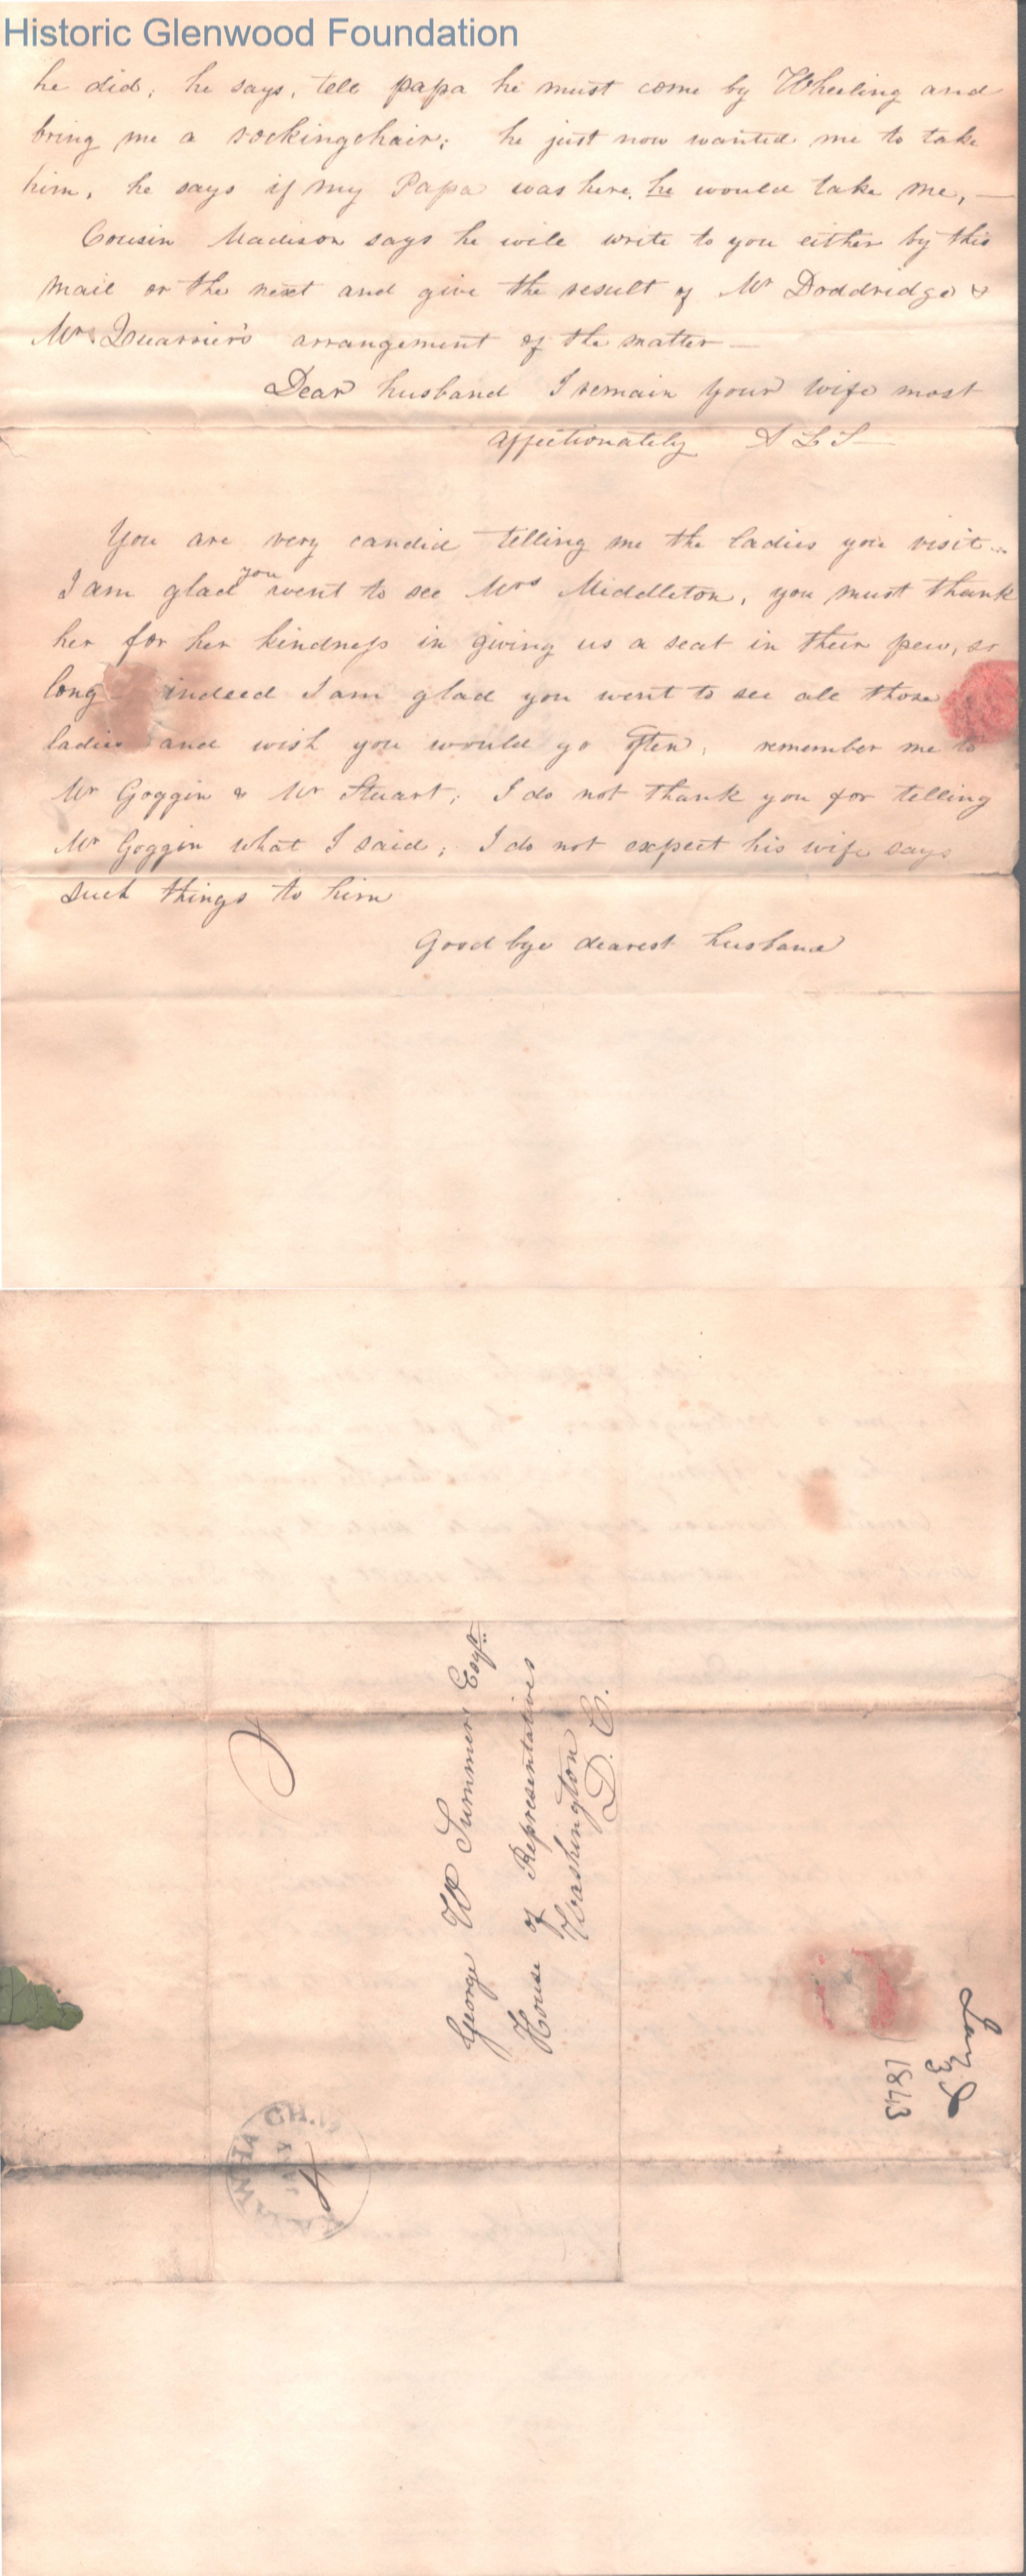 Historic Glenwood Foundation
he did; he says, tell papa he must come by Wheeling and
bring me a rockingchair; he just now wanted me to take
him, he says if my Papa was here, he would take me, —
Cousin Madison says he will write to you either by this
mail or the next and give the result of Mr Doddridge &
Mr Quarrier's arrangement of the matter —
Dear husband I remain your wife most
affectionately A L S —
You are very candid telling me the ladies you visit
I am glad you went to see Mrs Middleton, you must thank
her for her kindness in giving us a seat in their pew, so
long indeed I am glad you went to see all those
ladies and wish you would go often, remember me to
Mr Goggin & Mr Stuart; I do not thank you for telling
Mr Goggin what I said; I do not expect his wife says
such things to him
Good bye dearest husband
George W Summers Esqr
House of Representatives
Washington
D. C.
1843
CH.